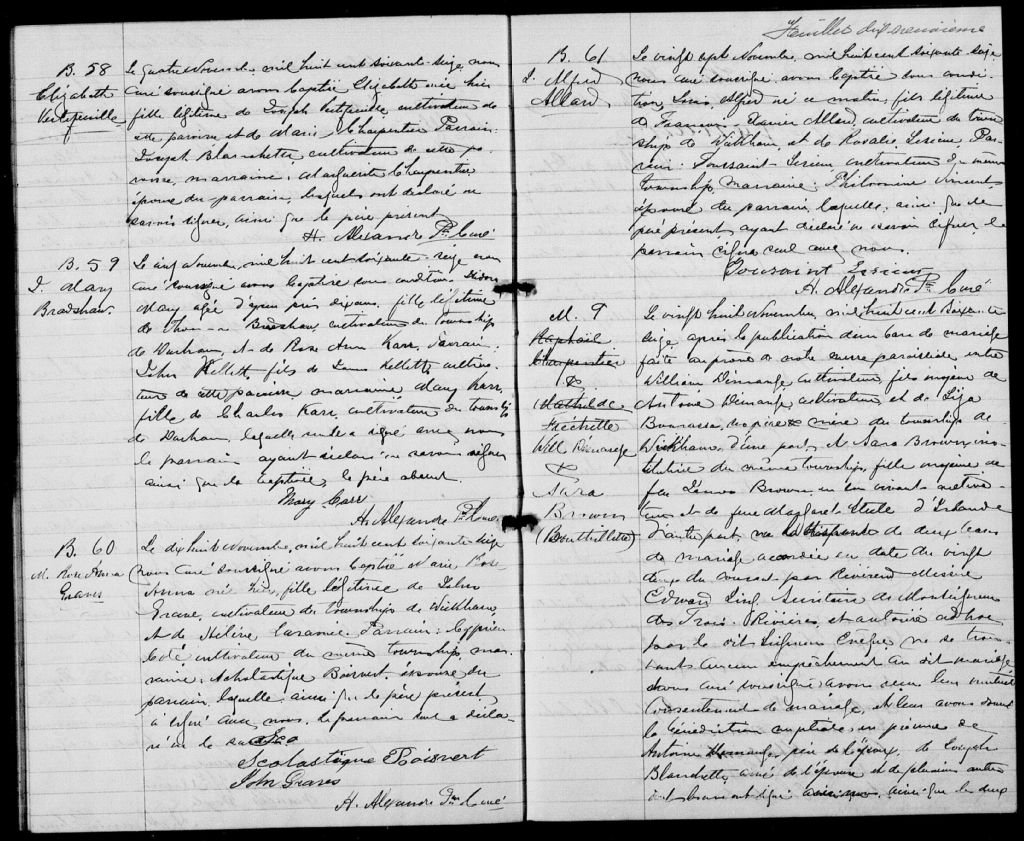 B. 58
Elizabeth
Vertefeuille
Le quatre Novembre, mil huit cent soixante-seize nous
curé soussigné avons baptisé Elizabeth née hier
fille légitime de Joseph Vertefeuille, cultivateur de
cette paroisse et de Marie Charpentier Parrain:
Joseph Blanchette cultivateur de cette pa-
roisse, marraine: Marguerite Charpentier
épouse du parrain, lesquels ont déclaré ne
savoir signer, ainsi que le père présent
H. Alexandre Ptre Curé
B. 59
Mary
Bradshaw.
Le cinq Novembre, mil huit cent soixante-seize nous
curé soussigné avons baptisé sous condition
Mary agée d'à peu près dix ans, fille légitime
de Thomas Bradshaw, cultivateur du township
de Durham, et de Rose Ann Karr, Parrain:
John Kellett fils de James Kellett, cultiva-
teur de cette paroisse marraine Mary Karr,
fille de Charles Karr, cultivateur du township
de Durham, laquelle seule a signé avec nous
le parrain ayant déclaré ne savoir signer
ainsi que la baptisée, le père absent.
Mary Carr
H. Alexandre Ptre Curé
B. 60
M. Rose Anna
Graves
Le dix huit Novembre, mil huit cent soixante-seize
nous Curé soussigné avons baptisé Marie Rose
Anna née hier, fille légitime de John
Grave, cultivateur du township de Wickham,
et de Hélène Laramée. Parrain: Cyprien
Côté cultivateur du même township, mar-
raine: Scholastique Boisvert, épouse du
parrain, laquelle ainsi que le père présent
a signé avec nous, le parrain seul a décla-
ré ne le savoir
Scolastique Boisvert
John Graves
H. Alexandre Ptre Curé
Feuillet dix neuvième
B. 61
L. Alfred
Allard
Le vingt sept Novembre, mil huit cent soixante-seize
nous curé soussigné avons baptisé sous condi-
tion, Louis Alfred né ce matin, fils légitime
de François Xavier Allard, cultivateur du town-
ship de Wickham, et de Rosalie Lesieur, Par-
rain: Toussaint Lesieur cultivateur du même
township, Marraine: Philomène Vincent,
épouse du parrain, laquelle, ainsi que le
père présent ayant déclaré ne savoir signer, le
parrain signe seul avec nous.
Toussaint Lesieur
H. Alexandre Ptre Curé
M. 9
Raphaël
Charpentier
&
Mathilde
Fréchette
Will Démarage
&
Sara
Brown
(Bouthillette)
Le vingt huit Novembre, mil huit cent soixante
seize après la publication d'un banc de mariage
faite au prône de notre messe paroissiale, entre
William Démarage cultivateur, fils majeur de
Antoine Démarage cultivateur et de Liza
Bourassa, ses père & mère du township de
Wickham, d'une part, et Sara Brown, ins-
titutrice du même township, fille majeure de
feu James Brown, en son vivant cultiva-
teur et de feue Margaret Steele d'Irlande
d'autre part, vu la dispense de deux bans
de mariage accordée en date du vingt
deux du courant par Révérend Messire
Edward Ling, Secrétaire de Monseigneur
des Trois-Rivières, et autorisé ad hoc
par le dit Seigneur Evêque, ne se trou-
vant aucun empêchement au dit mariage
nous curé soussigné avons reçu leur mutuel
consentement de mariage, et leur avons donné
la bénédiction nuptiale, en présence de
Antoine Demarage, père de l'époux, de Joseph
Blanchette, ami de l'épouse et de plusieurs autres
ainsi que les deux